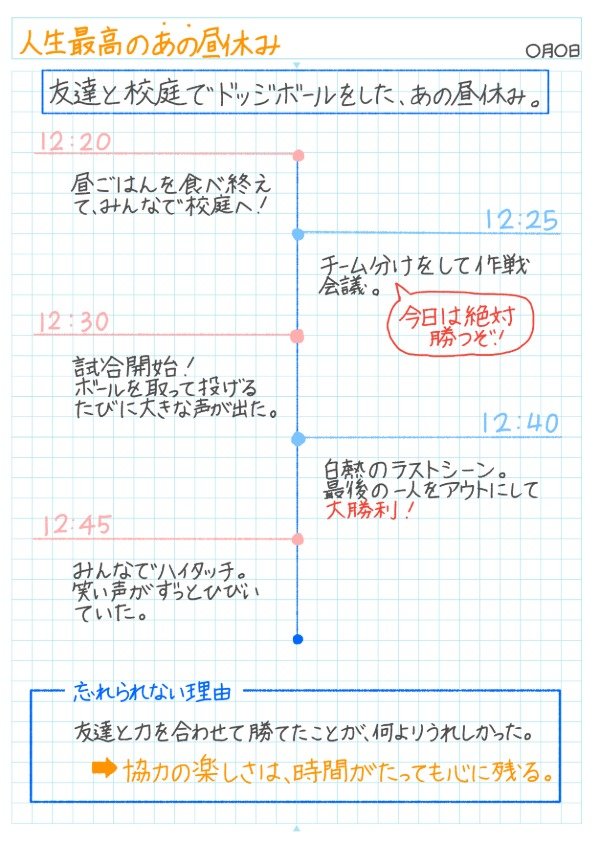 人生最高のあの昼休み
〇月〇日
友達と校庭でドッジボールをした、あの昼休み。
12:20
昼ごはんを食べ終え
て、みんなで校庭へ!
12:25
チーム分けをして作戦
会議。
今日は絶対
勝つぞ!!
12:30
試合開始!
ボールを取って投げる
たびに大きな声が出た。
12:40
白熱のラストシーン。
最後の一人をアウトにして
大勝利!
12:45
みんなでハイタッチ。
笑い声がずっとひびい
ていた。
忘れられない理由
友達と力を合わせて勝てたことが、何よりうれしかった。
➡協力の楽しさは、時間がたっても心に残る。